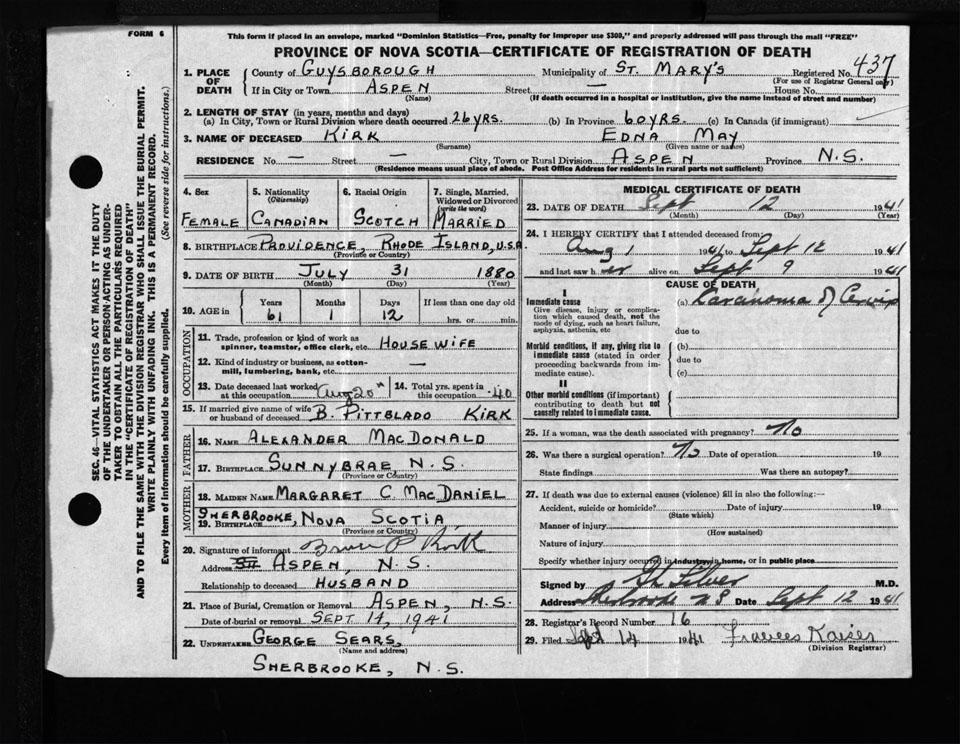 FORM 6
This form if placed in an envelope, marked "Dominion Statistics—Free, penalty for improper use $300," and properly addressed will pass through the mail "FREE"
PROVINCE OF NOVA SCOTIA—CERTIFICATE OF REGISTRATION OF DEATH
SEC. 46—VITAL STATISTICS ACT MAKES IT THE DUTY
OF THE UNDERTAKER OR PERSON ACTING AS UNDER-
TAKER TO OBTAIN ALL THE PARTICULARS REQUIRED
IN THE "CERTIFICATE OF REGISTRATION OF DEATH"
AND TO FILE THE SAME WITH THE DIVISION REGISTRAR WHO SHALL ISSUE THE BURIAL PERMIT.
WRITE PLAINLY WITH UNFADING INK. THIS IS A PERMANENT RECORD.
Every item of information should be carefully supplied. (See reverse side for instructions.)
1. PLACE OF DEATH
County of GUYSBOROUGH Municipality of ST. MARY'S Registered No. 437
(For use of Registrar General only)
If in City or Town ASPEN Street — House No.
(Name) (If death occurred in a hospital or institution, give the name instead of street and number)
2. LENGTH OF STAY (in years, months and days)
(a) In City, Town or Rural Division where death occurred 26 YRS. (b) In Province 60 YRS. (c) In Canada (if immigrant)
3. NAME OF DECEASED KIRK EDNA MAY
(Surname) (Given name or names)
RESIDENCE No. — Street — City, Town or Rural Division ASPEN Province N.S.
(Residence means usual place of abode. Post Office Address for residents in rural parts not sufficient)
4. Sex 5. Nationality (Citizenship) 6. Racial Origin 7. Single, Married, Widowed or Divorced (write the word)
FEMALE CANADIAN SCOTCH MARRIED
8. BIRTHPLACE PROVIDENCE, RHODE ISLAND, U.S.A.
(Province or Country)
9. DATE OF BIRTH JULY 31 1880
(Month) (Day) (Year)
10. AGE in Years Months Days If less than one day old
61 1 12 hrs. or min.
OCCUPATION
11. Trade, profession or kind of work as
spinner, teamster, office clerk, etc. HOUSE WIFE
12. Kind of industry or business, as cotton-
mill, lumbering, bank, etc. —
13. Date deceased last worked
at this occupation Aug 20th
14. Total yrs. spent in
this occupation 40
15. If married give name of wife
or husband of deceased B. PITTBLADO KIRK
FATHER
16. NAME ALEXANDER MACDONALD
17. BIRTHPLACE SUNNYBRAE, N.S.
(Province or Country)
MOTHER
18. MAIDEN NAME MARGARET C. MACDANIEL
19. BIRTHPLACE SHERBROOKE, NOVA SCOTIA
(Province or Country)
20. Signature of informant Bruce P. Kirk
Address ASPEN, N.S.
Relationship to deceased HUSBAND
21. Place of Burial, Cremation or Removal ASPEN, N.S.
Date of burial or removal SEPT 14, 1941
22. UNDERTAKER GEORGE SEARS,
(Name and address)
SHERBROOKE, N.S.
MEDICAL CERTIFICATE OF DEATH
23. DATE OF DEATH Sept 12 1941
(Month) (Day) (Year)
24. I HEREBY CERTIFY that I attended deceased from
Aug 1 1941 to Sept 12 1941
and last saw her alive on Sept 9 1941
CAUSE OF DEATH
I
Immediate cause (a) Carcinoma of Cervix
Give disease, injury or complica-
tion which caused death, not the
mode of dying, such as heart failure,
asphyxia, asthenia, etc
due to
Morbid conditions, if any, giving rise to (b)
immediate cause (stated in order due to
proceeding backwards from im-
mediate cause). (c)
II
Other morbid conditions (if important)
contributing to death but not
causally related to immediate cause.
25. If a woman, was the death associated with pregnancy? No
26. Was there a surgical operation? No Date of operation 19
State findings Was there an autopsy?
27. If death was due to external causes (violence) fill in also the following:—
Accident, suicide or homicide? Date of injury 19
(State which)
Manner of injury
(How sustained)
Nature of injury
Specify whether injury occurred in industry, in home, or in public place
Signed by Silver M.D.
Address Sherbrooke N S Date Sept 12 1941
28. Registrar's Record Number 16
29. Filed Sept 14 1941 Frances Kaiser
(Division Registrar)